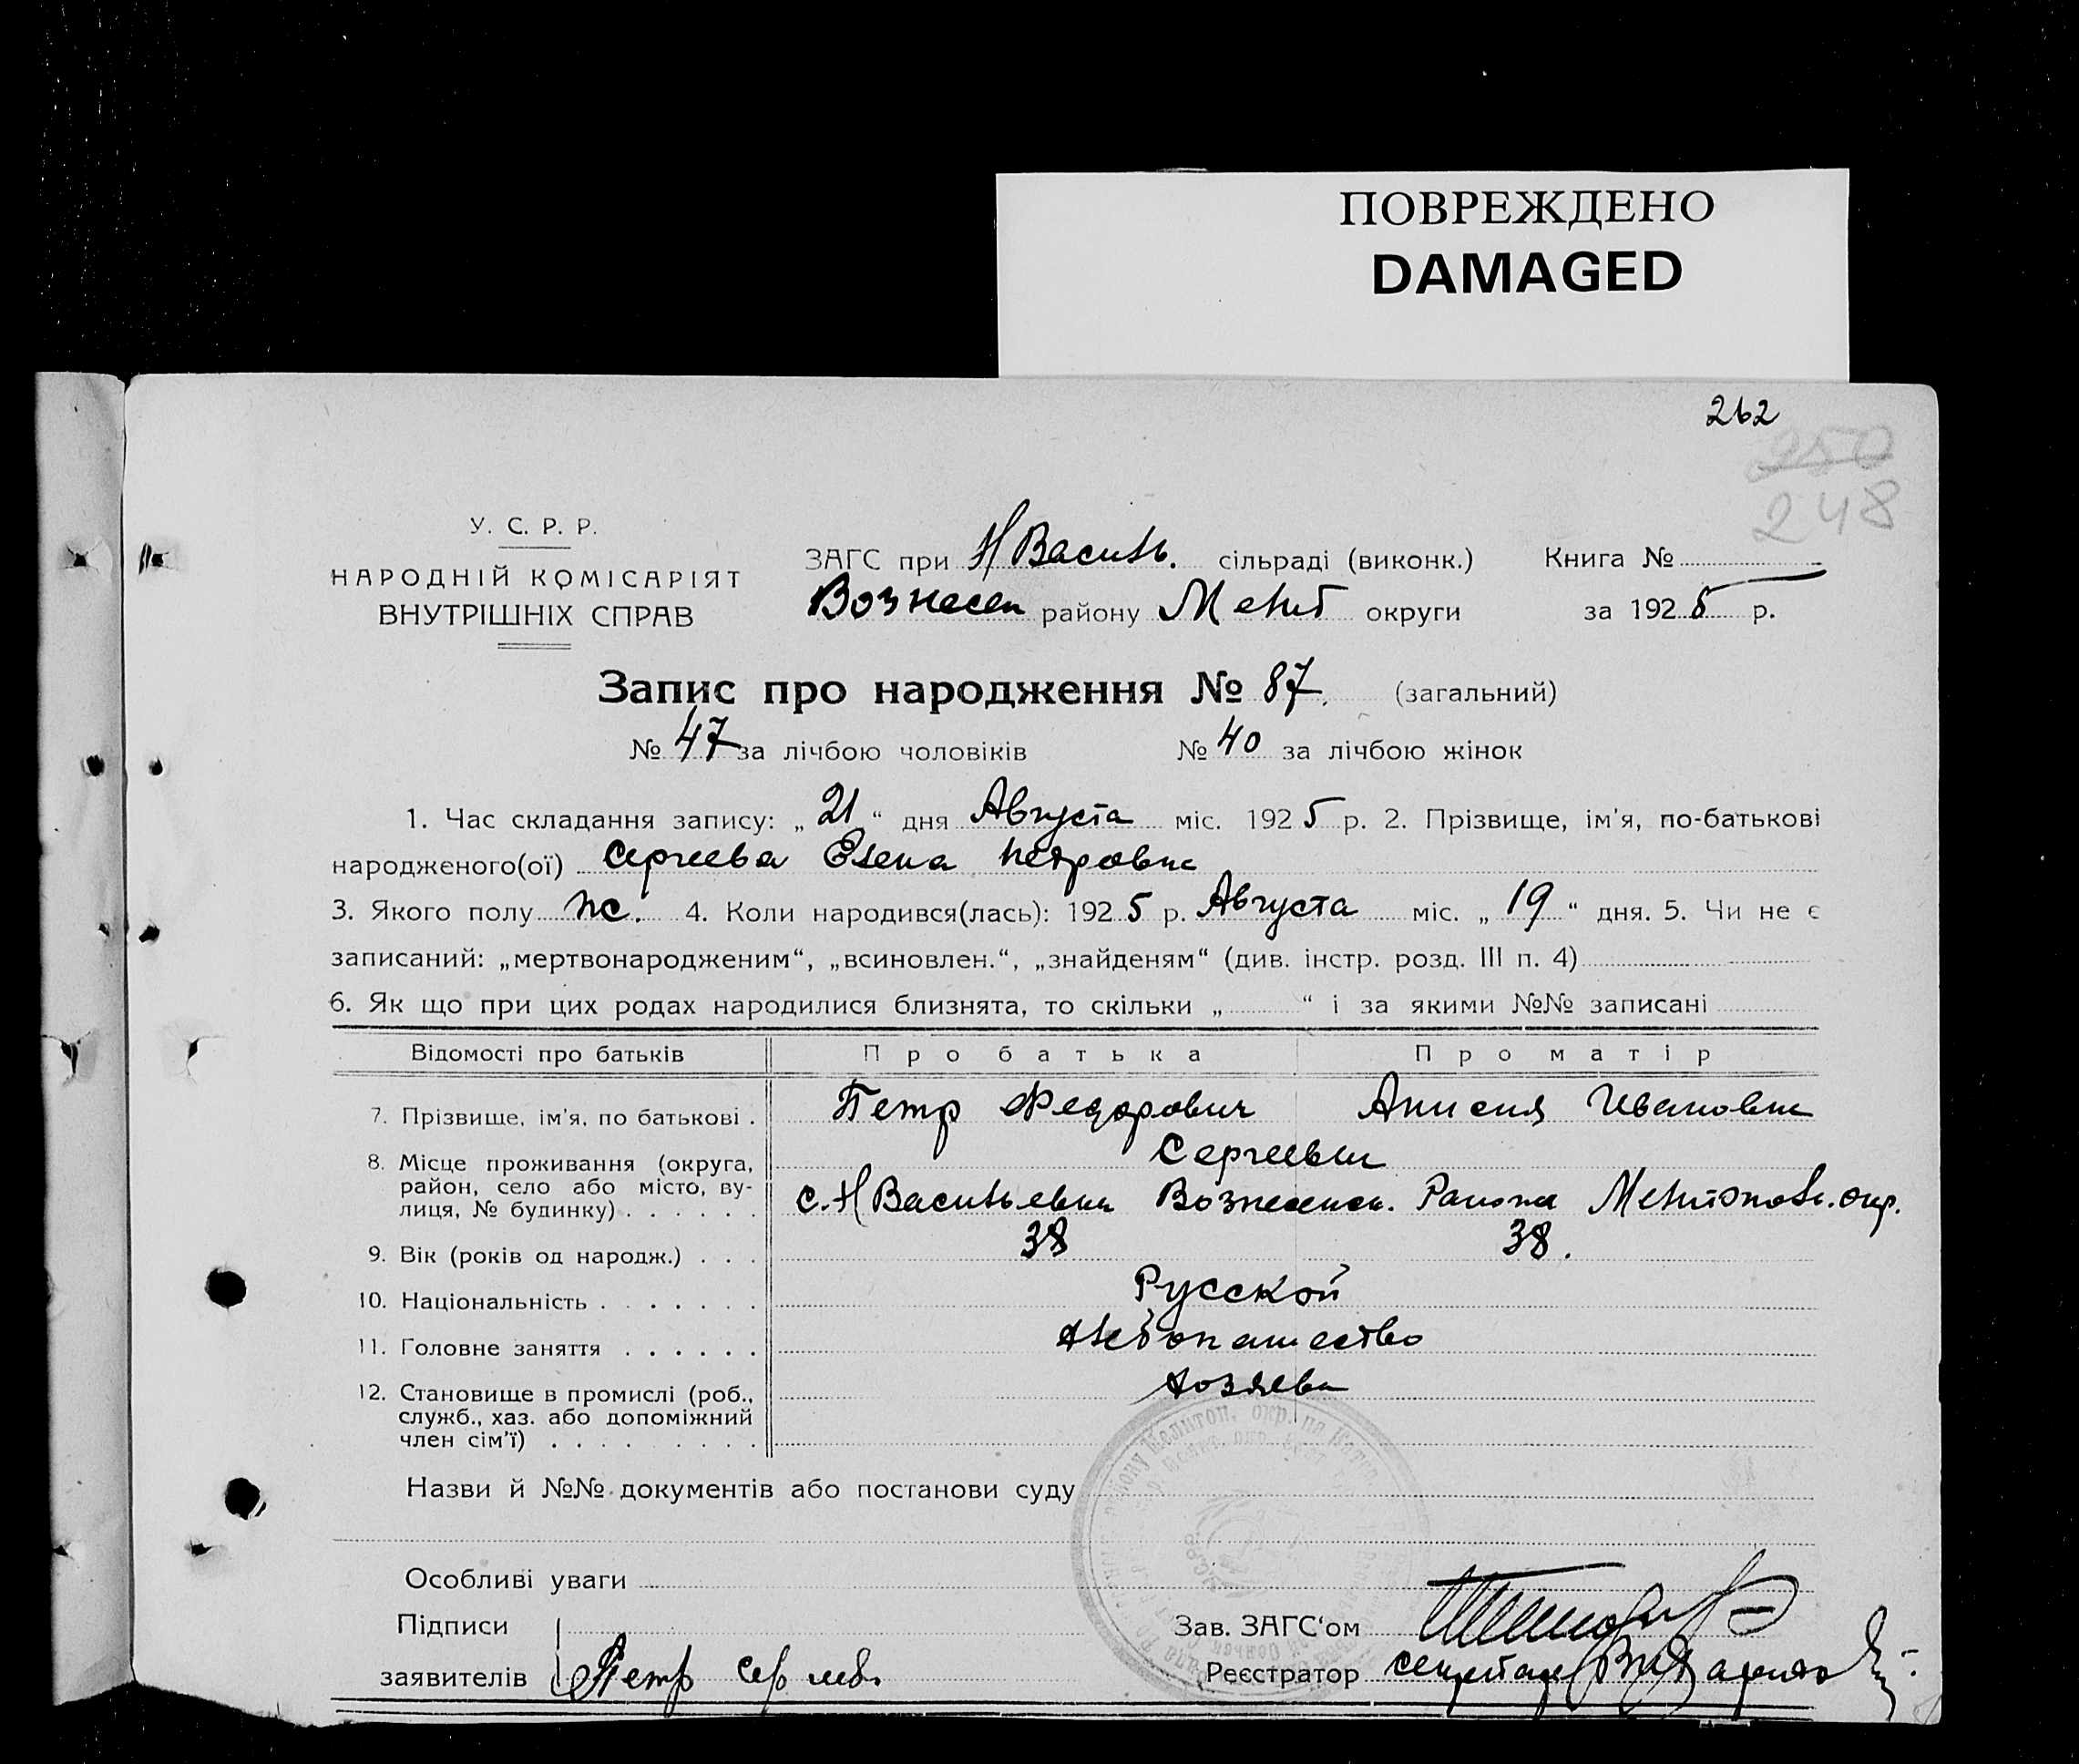 ПОВРЕЖДЕНО
DAMAGED
262
250
248
У. С. Р. Р.
НАРОДНІЙ КОМІСАРІЯТ
ВНУТРІШНІХ СПРАВ
ЗАГС при НВасиль. сільраді (виконк.) Книга №
Вознесен району Мелит округи за 1925 р.
Запис про народження № 87. (загальний)
№ 47 за лічбою чоловіків № 40 за лічбою жінок
1. Час складання запису: „ 21 “ дня Августа міс. 1925 р. 2. Прізвище, ім'я, по-батькові
народженого(ої) Сергеева Елена Петровна
3. Якого полу ж. 4. Коли народився(лась): 1925 р. Августа міс. „ 19 “ дня. 5. Чи не є
записаний: „мертвонародженим“, „всиновлен.“, „знайденям“ (див. інстр. розд. III п. 4)
6. Як що при цих родах народилися близнята, то скільки „ “ і за якими №№ записані
Відомості про батьків Про батька Про матір
7. Прізвище, ім'я, по батькові . Петр Федорович Анисия Ивановна
Сергеевы
8. Місце проживання (округа,
район, село або місто, ву-
лиця, № будинку) . . . . . . с. НВасильевки Вознесенск. Района Мелитополь. окр.
9. Вік (років од народж.) . . . 38 38.
10. Національність . . . . . . . Русской
11. Головне заняття . . . . . . Хлебопашество
12. Становище в промислі (роб.,
служб., хаз. або допоміжний
член сім'ї) . . . . . . . . . Хозяева
Назви й №№ документів або постанови суду
Особливі уваги
Підписи
заявителів Петр Сергеев
Зав. ЗАГС‘ом
Реєстратор секретарь